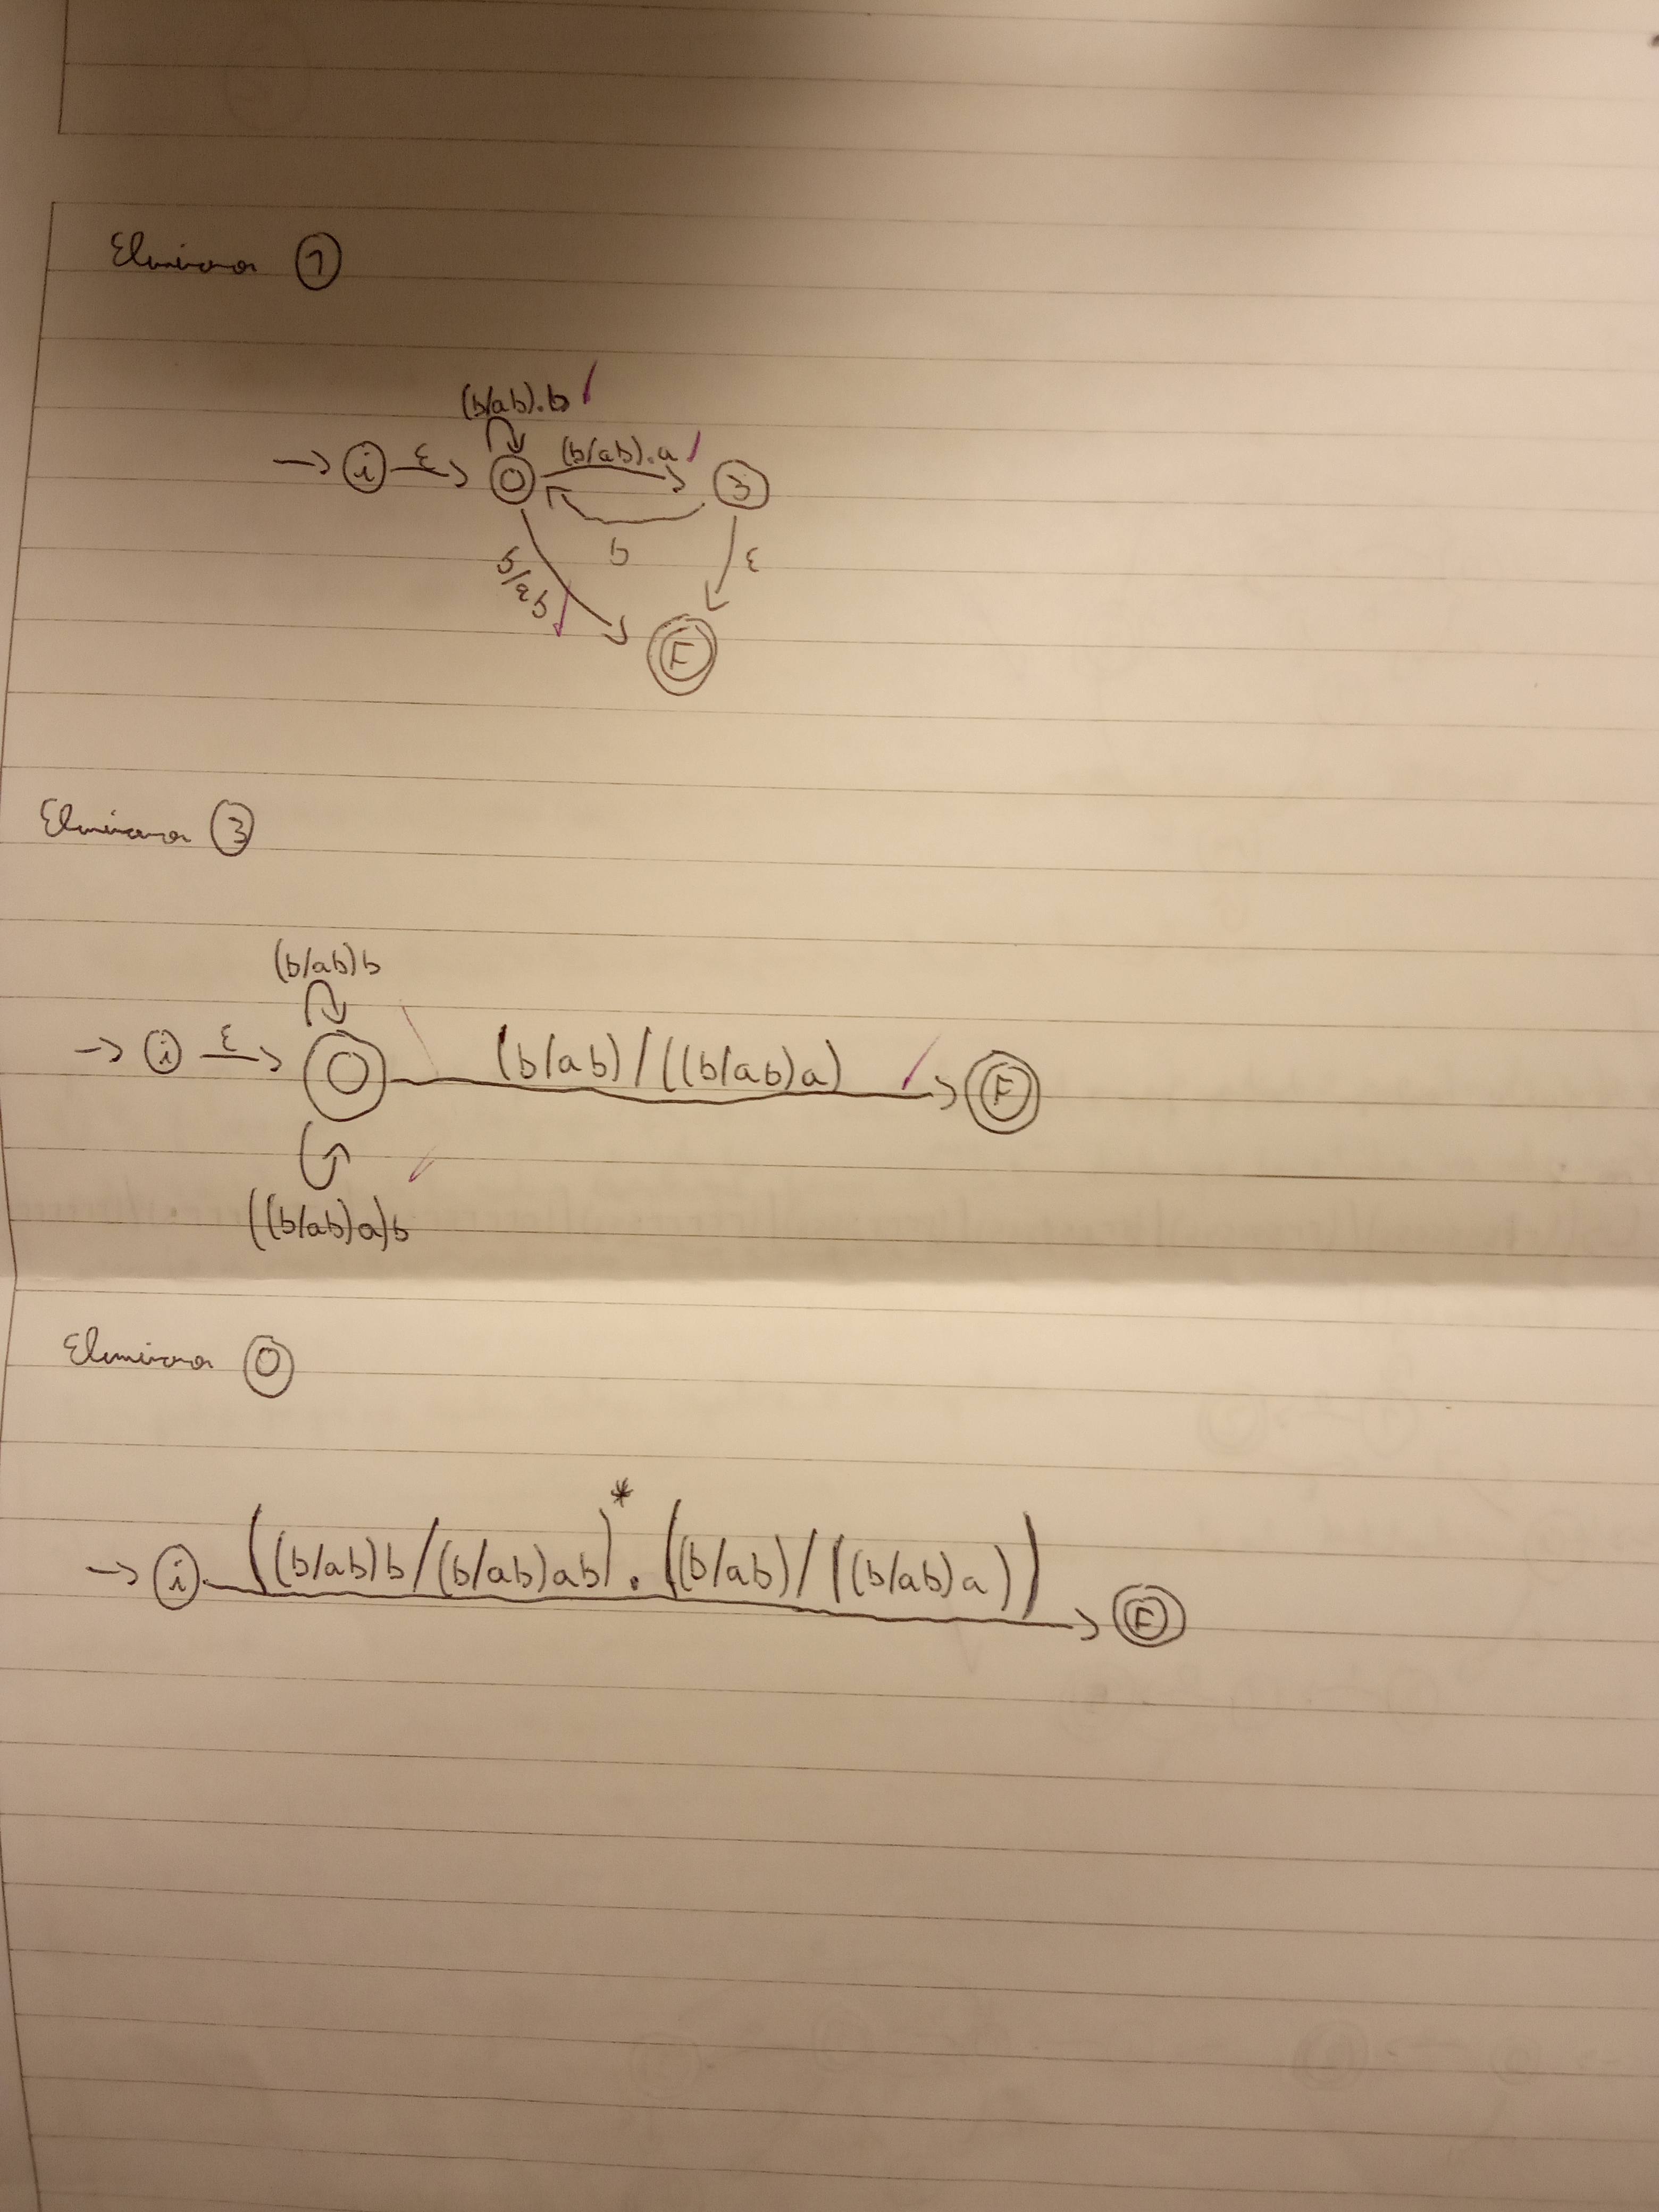 Elimina 1
(b/ab).b
→ i ε 0 (b/ab).a 3
b
b/ab
ε
F
Elimina 3
(b/ab)b
→ i ε 0 (b/ab)/((b/ab)a) F
((b/ab)a)b
Elimina 0
→ i ((b/ab)b/(b/ab)ab)*.((b/ab)/((b/ab)a)) F